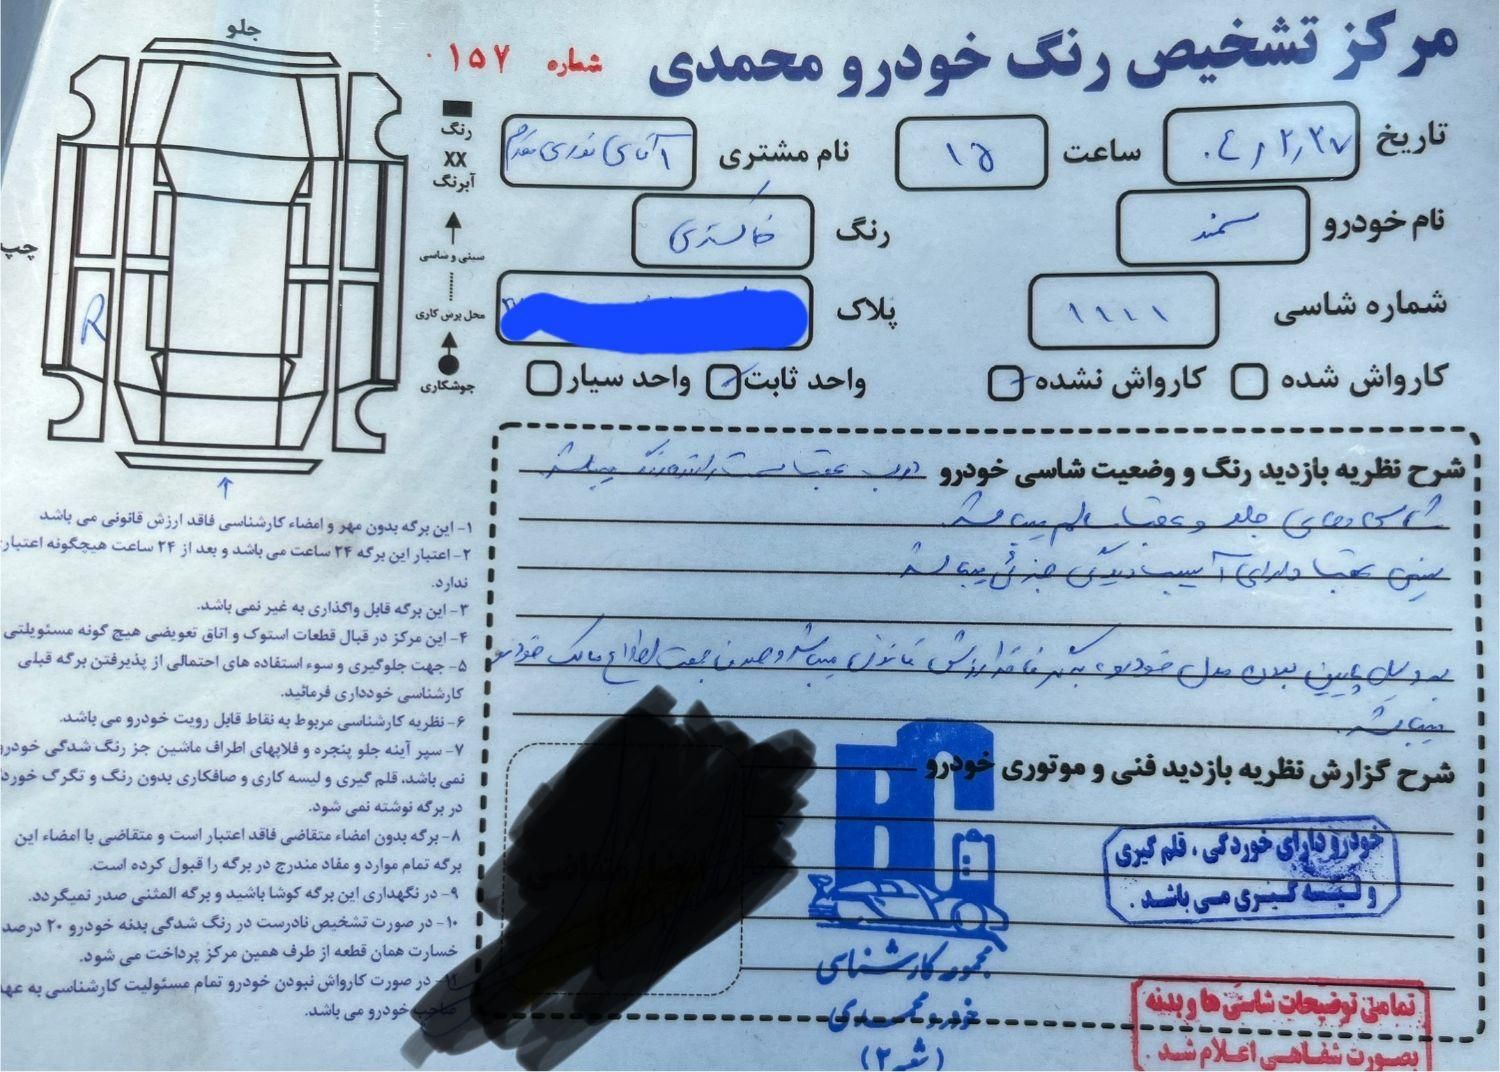 مرکز تشخیص رنگ خودرو محمدی
شماره ۱۵۷۰
تاریخ ۰۴٫۲٫۲۷ ساعت ۱۵ نام مشتری آقای نوری مقدم
نام خودرو سمند رنگ خاکستری
شماره شاسی ۱۱۱۱ پلاک
کارواش شده کارواش نشده واحد ثابت واحد سیار
جلو
چپ
R
رنگ
XX
آبرنگ
سینی و شاسی
محل پرس کاری
جوشکاری
شرح نظریه بازدید رنگ و وضعیت شاسی خودرو درب عقب سمت راننده رنگ میباشد
شاسی های جلو و عقب سالم میباشد
سینی عقب دارای آسیب دیدگی جزئی میباشد
به دلیل پایین بودن مدل خودرو برگه فاقد ارزش قانونی میباشد و صرفا جهت اطلاع مالک خودرو
میباشد.
شرح گزارش نظریه بازدید فنی و موتوری خودرو
خودرو دارای خوردگی ، قلم گیری
و لیسه گیری می باشد .
مجموعه کارشناسی
خودرو محمدی
(شعبه ۲)
تمامی توضیحات شاسی ها و بدنه
بصورت شفاهی اعلام شد .
۱- این برگه بدون مهر و امضاء کارشناسی فاقد ارزش قانونی می باشد
۲- اعتبار این برگه ۲۴ ساعت می باشد و بعد از ۲۴ ساعت هیچگونه اعتباری
ندارد.
۳- این برگه قابل واگذاری به غیر نمی باشد.
۴- این مرکز در قبال قطعات استوک و اتاق تعویضی هیچ گونه مسئولیتی
۵- جهت جلوگیری و سوء استفاده های احتمالی از پذیرفتن برگه قبلی
کارشناسی خودداری فرمائید.
۶- نظریه کارشناسی مربوط به نقاط قابل رویت خودرو می باشد.
۷- سپر آینه جلو پنجره و قلابهای اطراف ماشین جز رنگ شدگی خودرو
نمی باشد، قلم گیری و لیسه کاری و صافکاری بدون رنگ و تگرگ خوردگی
در برگه نوشته نمی شود.
۸- برگه بدون امضاء متقاضی فاقد اعتبار است و متقاضی با امضاء این
برگه تمام موارد و مفاد مندرج در برگه را قبول کرده است.
۹- در نگهداری این برگه کوشا باشید و برگه المثنی صدر نمیگردد.
۱۰- در صورت تشخیص نادرست در رنگ شدگی بدنه خودرو ۲۰ درصد
خسارت همان قطعه از طرف همین مرکز پرداخت می شود.
۱۱- در صورت کارواش نبودن خودرو تمام مسئولیت کارشناسی به عهده
صاحب خودرو می باشد.